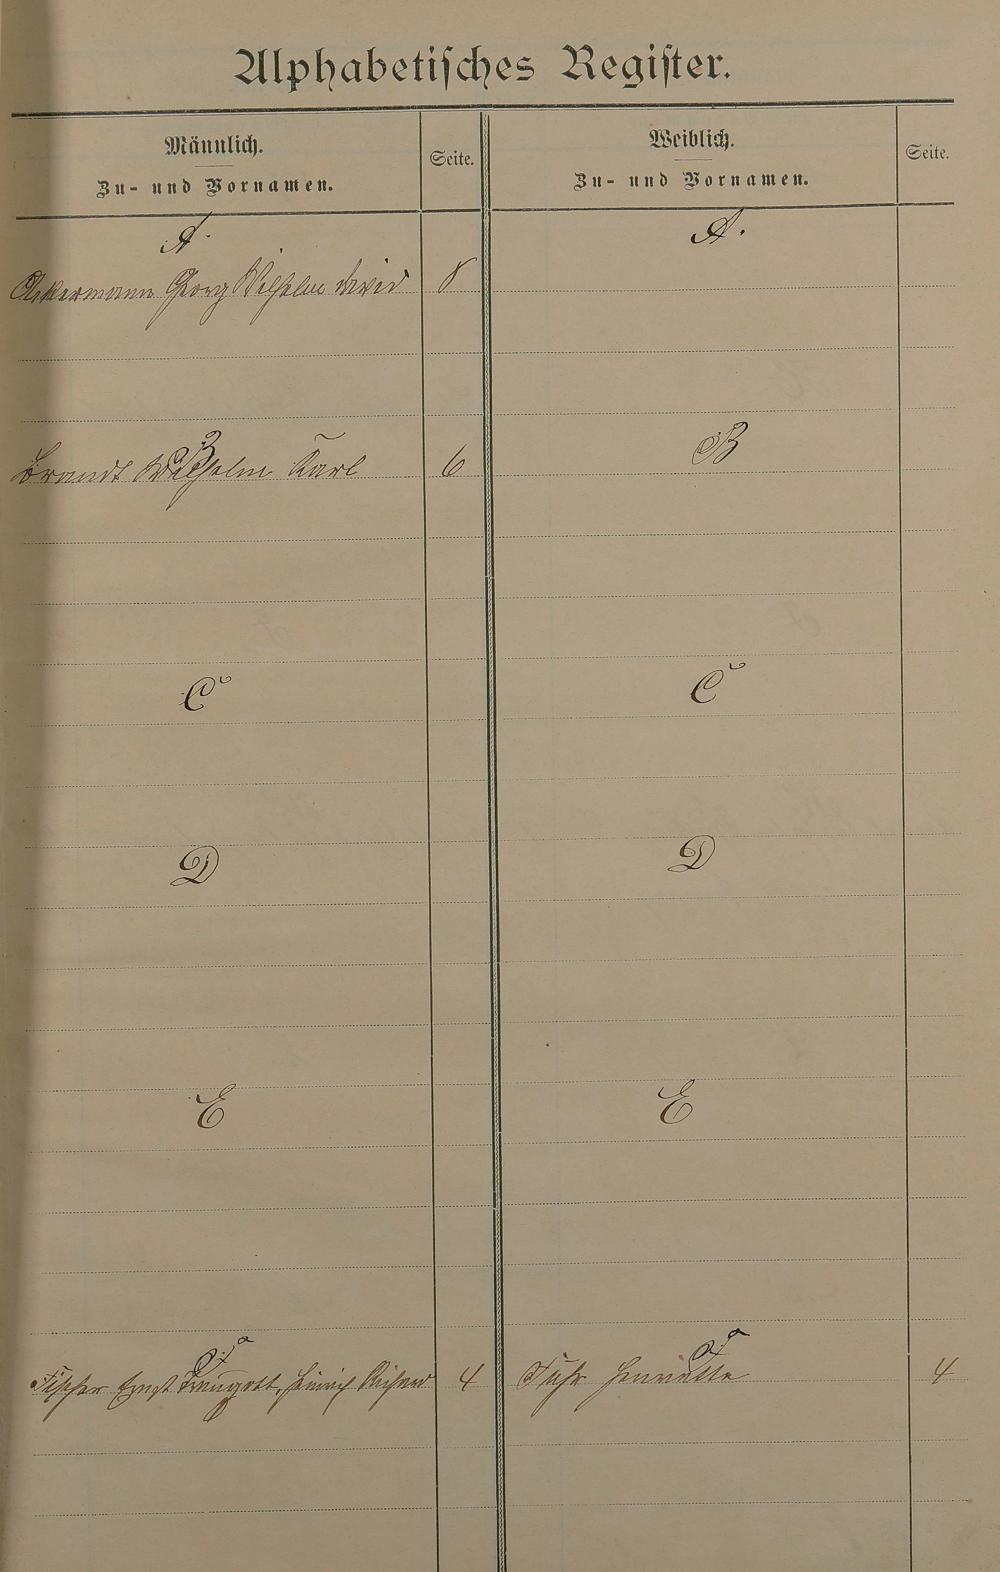 Alphabetisches Register.
Männlich.
Zu- und Vornamen.
Seite.
Weiblich.
Zu- und Vornamen.
Seite.
A.
A.
Ackermann Georg Wilhelm David 8
B
B
Brandt Wilhelm Karl 6
C
C
D
D
E
E
F
F
Fischer Ernst Traugott, Heinrich Richard 4
Fuhr Henriette 4